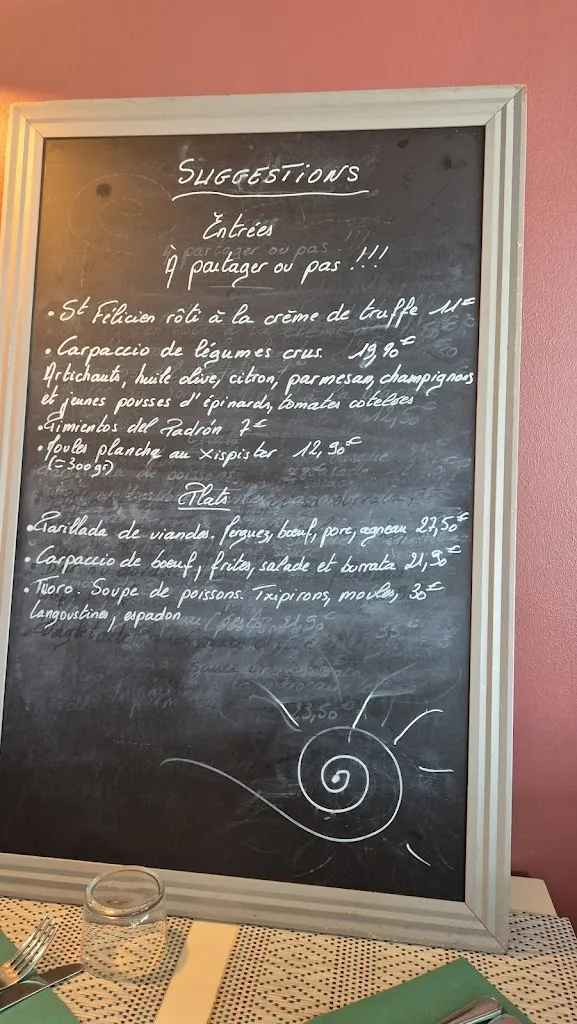 SUGGESTIONS
Entrées
À partager ou pas !!!
• St Félicien rôti à la crème de truffe 11€
• Carpaccio de légumes crus 19,90€
Artichauts, huile olive, citron, parmesan, champignons
et jeunes pousses d'épinards, tomates cotelées
• Pimientos del Padrón 7€
• Moules plancha au xispister 12,90€
(=300gr)
Plats
• Parillada de viandes, ferguez, bœuf, porc, agneau 27,50€
• Carpaccio de boeuf, frites, salade et burrata 21,90€
• Ttoro. Soupe de poissons. Txipirons, moules, 30€
Langoustines, espadon